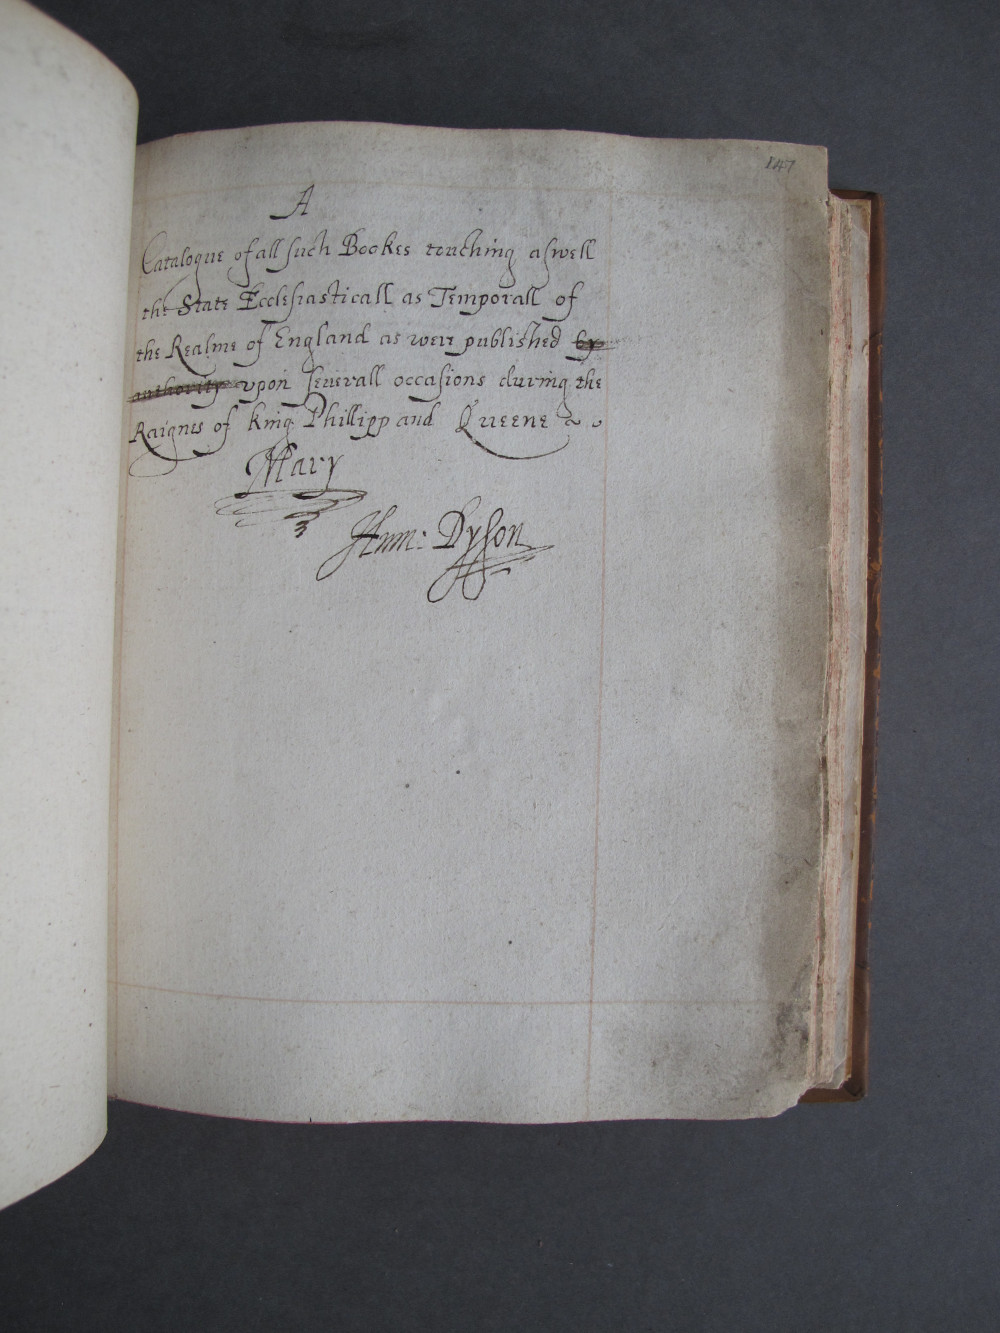 147
A
Catalogue of all such Bookes touching aswell
the State Ecclesiasticall as Temporall of
the Realme of England as were published by
authority vpon seuerall occasions during the
Raignes of King Phillipp and Queene
Mary
Hum: Dyson